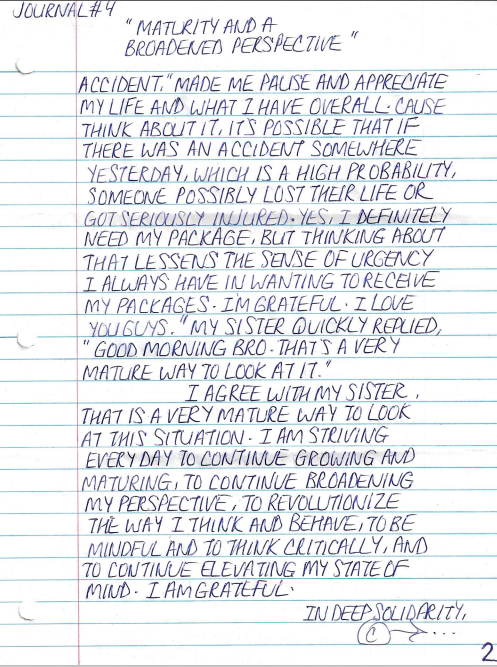 JOURNAL #4
"MATURITY AND A
BROADENED PERSPECTIVE"
ACCIDENT," MADE ME PAUSE AND APPRECIATE
MY LIFE AND WHAT I HAVE OVERALL. CAUSE
THINK ABOUT IT, IT'S POSSIBLE THAT IF
THERE WAS AN ACCIDENT SOMEWHERE
YESTERDAY, WHICH IS A HIGH PROBABILITY,
SOMEONE POSSIBLY LOST THEIR LIFE OR
GOT SERIOUSLY INJURED. YES, I DEFINITELY
NEED MY PACKAGE, BUT THINKING ABOUT
THAT LESSENS THE SENSE OF URGENCY
I ALWAYS HAVE IN WANTING TO RECEIVE
MY PACKAGES. I'M GRATEFUL. I LOVE
YOU GUYS." MY SISTER QUICKLY REPLIED,
"GOOD MORNING BRO. THAT'S A VERY
MATURE WAY TO LOOK AT IT."
I AGREE WITH MY SISTER,
THAT IS A VERY MATURE WAY TO LOOK
AT THIS SITUATION. I AM STRIVING
EVERY DAY TO CONTINUE GROWING AND
MATURING, TO CONTINUE BROADENING
MY PERSPECTIVE, TO REVOLUTIONIZE
THE WAY I THINK AND BEHAVE, TO BE
MINDFUL AND TO THINK CRITICALLY, AND
TO CONTINUE ELEVATING MY STATE OF
MIND. I AM GRATEFUL.
IN DEEP SOLIDARITY,
C
2